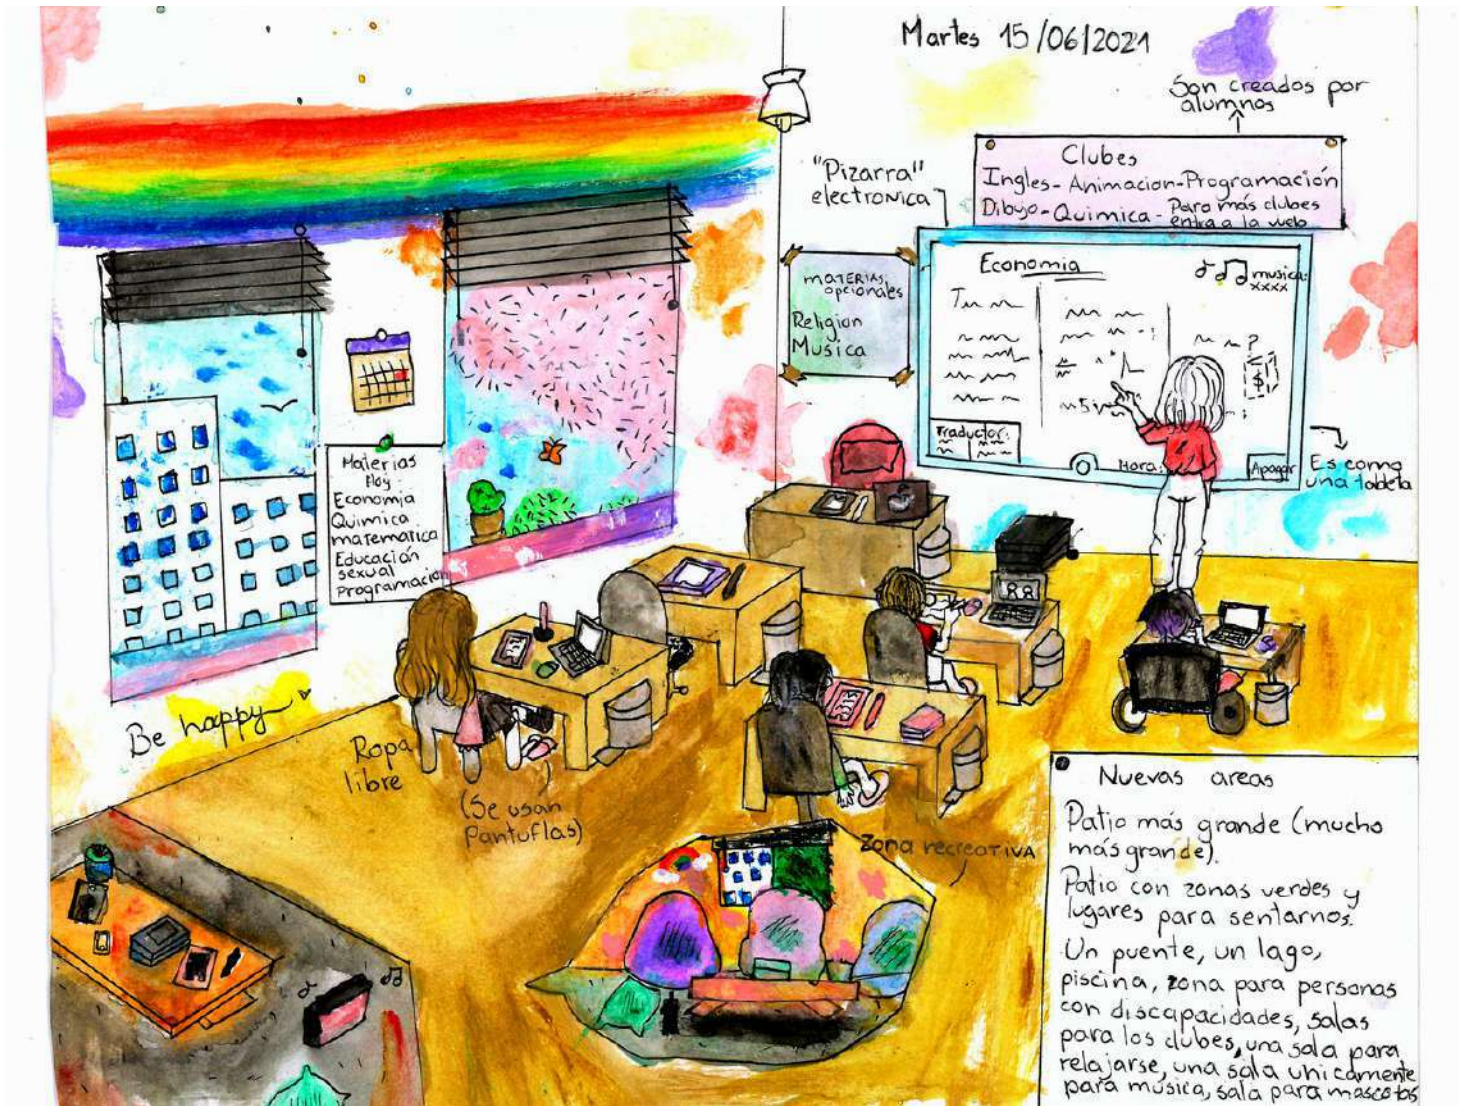 Martes 15/06/2021
Son creados por
alumnos
Clubes
Ingles - Animacion - Programación
Dibujo - Quimica - Para más clubes
entra a la web
"Pizarra"
electronica
materias
opcionales
Religion
Musica
Economia
musica:
xxxx
$
Traductor:
Hora:
Apagar
Es como
una tableta
Materias
Hoy
Economia
Quimica
matematica
Educación
sexual
Programacion
Be happy
Ropa
libre
(Se usan
Pantuflas)
Zona recreativa
Nuevas areas
Patio más grande (mucho
más grande).
Patio con zonas verdes y
lugares para sentarnos.
Un puente, un lago,
piscina, zona para personas
con discapacidades, salas
para los clubes, una sala para
relajarse, una sala unicamente
para música, sala para mascotas